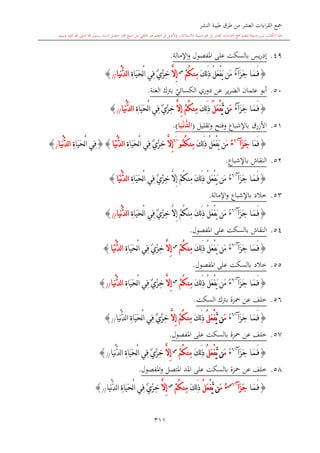 جمع القراءات العشر من طرق طيبة النشر
٤٩. إدريس بالسكت على المفصول والإمالة.
﴿ فَمَا جَزَآءُ مَن يَفْعَلُ ذَٰلِكَ مِنكُمْ إِلَّا خِزْىٌ فِي الْحَيَاةِ الدُّنْيَا ﴾
٥٠. أبو عثمان الضرير عن دوري الكسائي بترك الغنة.
﴿ فَمَا جَزَآءُ مَن يَفْعَلُ ذَٰلِكَ مِنكُمْ إِلَّا خِزْىٌ فِي الْحَيَاةِ الدُّنْيَا ﴾
٥١. الأزرق بالإشباع وفتح وتقليل (الدُّنْيَا).
﴿ فَمَا جَزَآءُ مَن يَفْعَلُ ذَٰلِكَ مِنكُمُ إِلَّا خِزْىٌ فِي الْحَيَاةِ الدُّنْيَا ﴾ ﴿ فِي الْحَيَاةِ الدُّنْيَا ﴾
٥٢. النقاش بالإشباع.
﴿ فَمَا جَزَآءُ مَن يَفْعَلُ ذَٰلِكَ مِنكُمْ إِلَّا خِزْىٌ فِي الْحَيَاةِ الدُّنْيَا ﴾
٥٣. خلاد بالإشباع والإمالة.
﴿ فَمَا جَزَآءُ مَن يَفْعَلُ ذَٰلِكَ مِنكُمْ إِلَّا خِزْىٌ فِي الْحَيَاةِ الدُّنْيَا ﴾
٥٤. النقاش بالسكت على المفصول.
﴿ فَمَا جَزَآءُ مَن يَفْعَلُ ذَٰلِكَ مِنكُمْ إِلَّا خِزْىٌ فِي الْحَيَاةِ الدُّنْيَا ﴾
٥٥. خلاد بالسكت على المفصول.
﴿ فَمَا جَزَآءُ مَن يَفْعَلُ ذَٰلِكَ مِنكُمْ إِلَّا خِزْىٌ فِي الْحَيَاةِ الدُّنْيَا ﴾
٥٦. خلف عن حمزة بترك السكت.
﴿ فَمَا جَزَآءُ مَن يَفْعَلُ ذَٰلِكَ مِنكُمْ إِلَّا خِزْىٌ فِي الْحَيَاةِ الدُّنْيَا ﴾
٥٧. خلف عن حمزة بالسكت على المفصول.
﴿ فَمَا جَزَآءُ مَن يَفْعَلُ ذَٰلِكَ مِنكُمْ إِلَّا خِزْىٌ فِي الْحَيَاةِ الدُّنْيَا ﴾
٥٨. خلف عن حمزة بالسكت على المد المتصل والمفصول.
﴿ فَمَا جَزَآءُ مَن يَفْعَلُ ذَٰلِكَ مِنكُمْ إِلَّا خِزْىٌ فِي الْحَيَاةِ الدُّنْيَا ﴾
٣١١